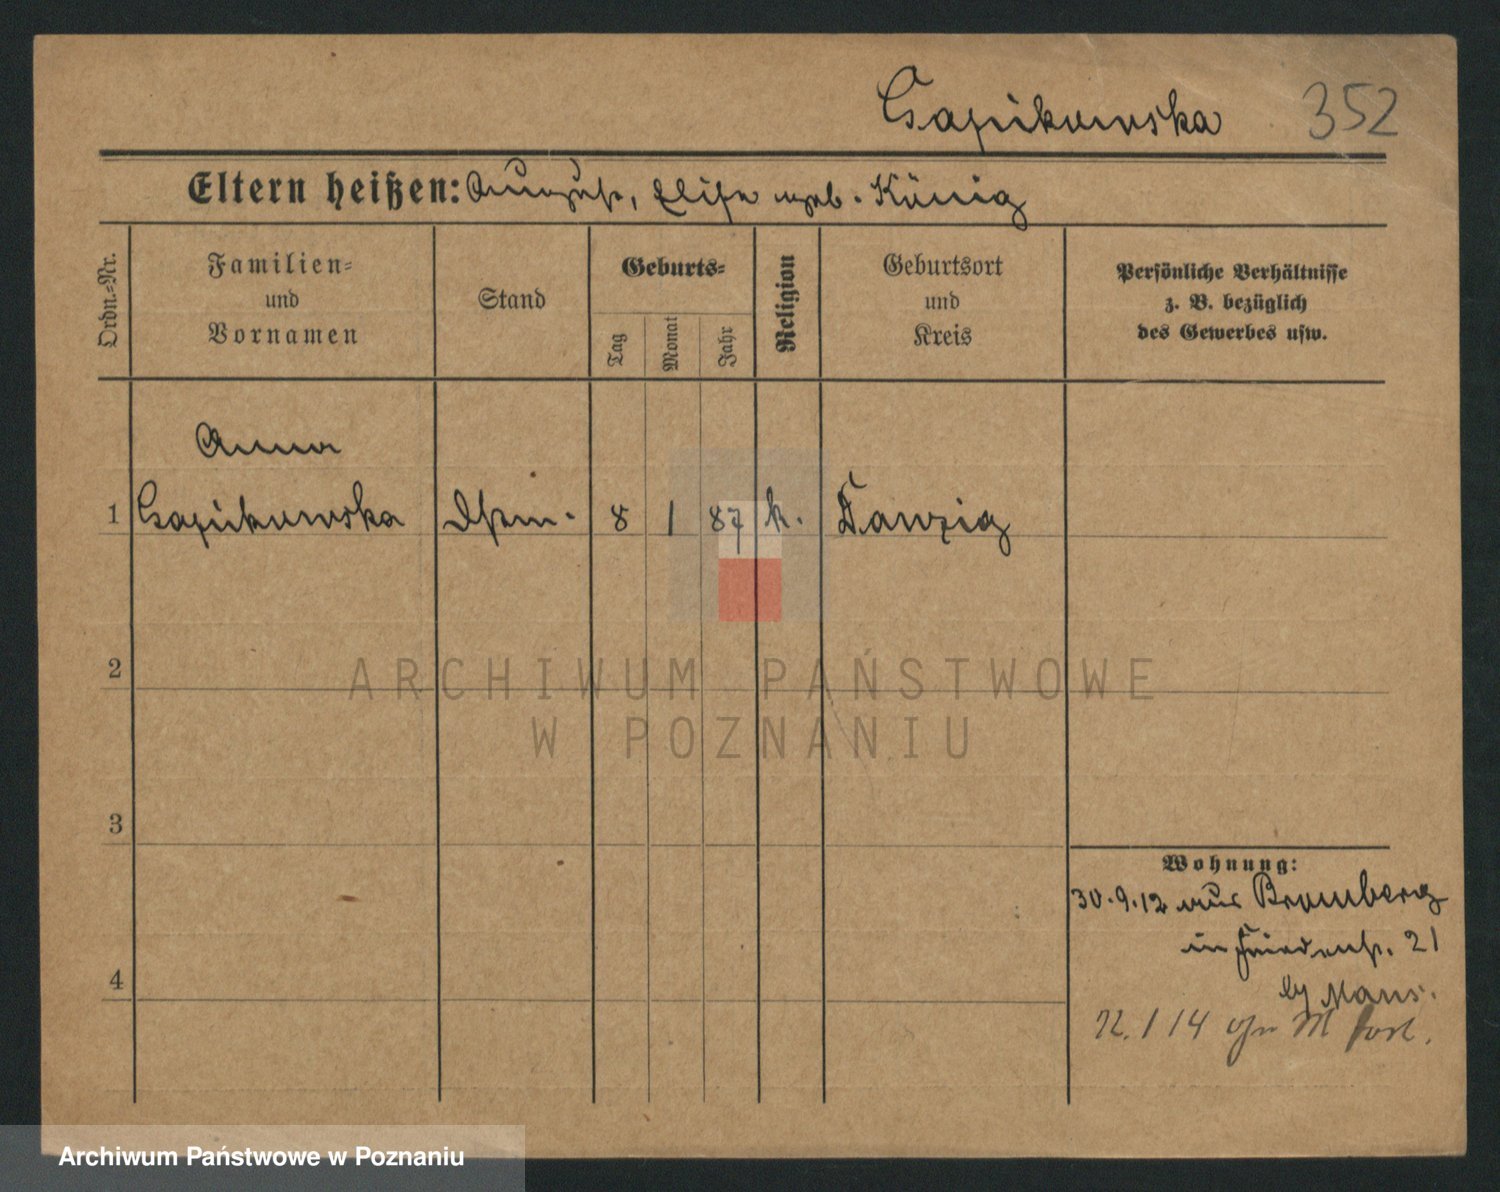 Czapikowska 352
Eltern heißen: August, Elise geb. König
Ordn.=Nr.
Familien=
und
Vornamen
Stand
Geburts=
Tag
Monat
Jahr
Religion
Geburtsort
und
Kreis
Persönliche Verhältnisse
z. B. bezüglich
des Gewerbes usw.
Anna
1 Czapikowska 8 1 87 k. Danzig
2
3
4
Wohnung:
30.9.12 aus Bromberg
in Friedenst. 21
by
1 14
ARCHIWUM PAŃSTWOWE
W POZNANIU
Archiwum Państwowe w Poznaniu